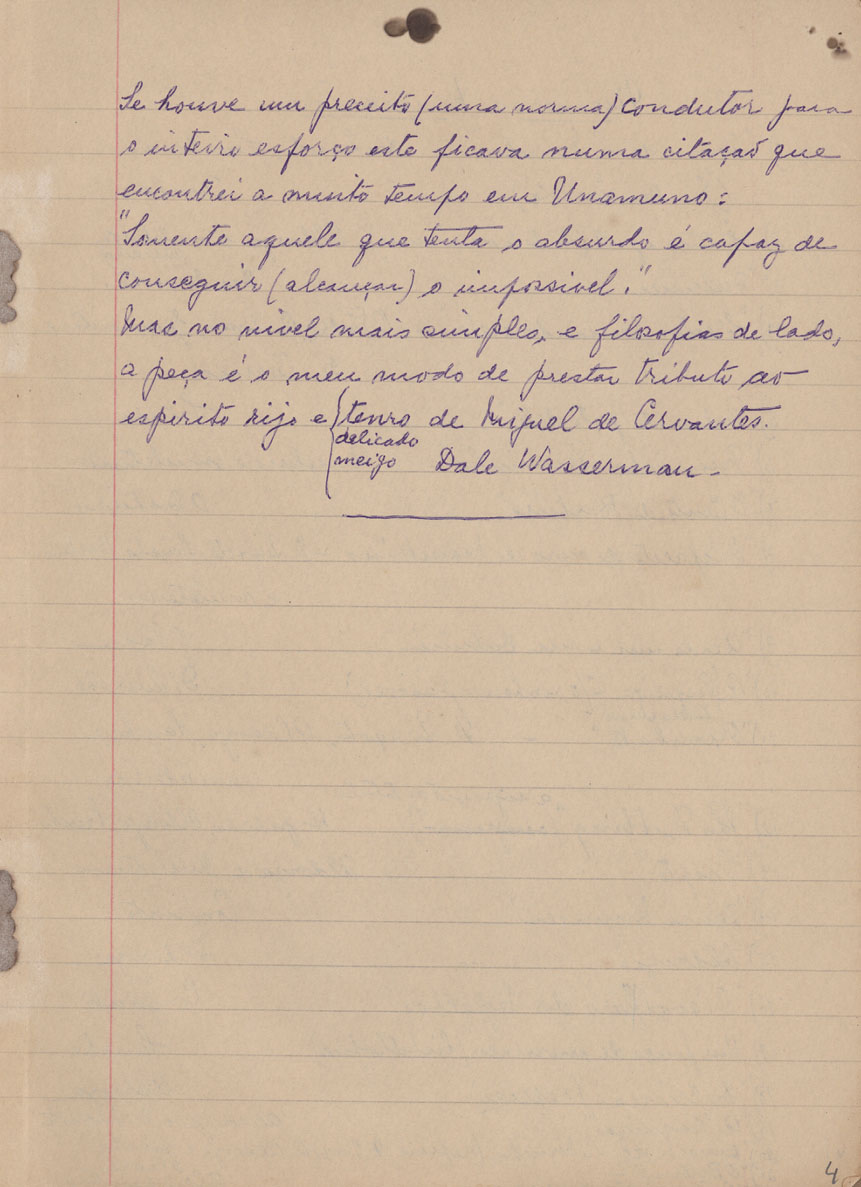 Se houve um preceito (uma norma) condutor para
o inteiro esforço este ficava numa citação que
encontrei a muito tempo em Unamuno:
"Somente aquele que tenta o absurdo é capaz de
conseguir (alcançar) o impossivel."
Mas no nivel mais simples, e filosofias de lado,
a peça é o meu modo de prestar tributo ao
espirito rijo e tenro de Miguel de Cervantes.
delicado
meigo Dale Wasserman -
4